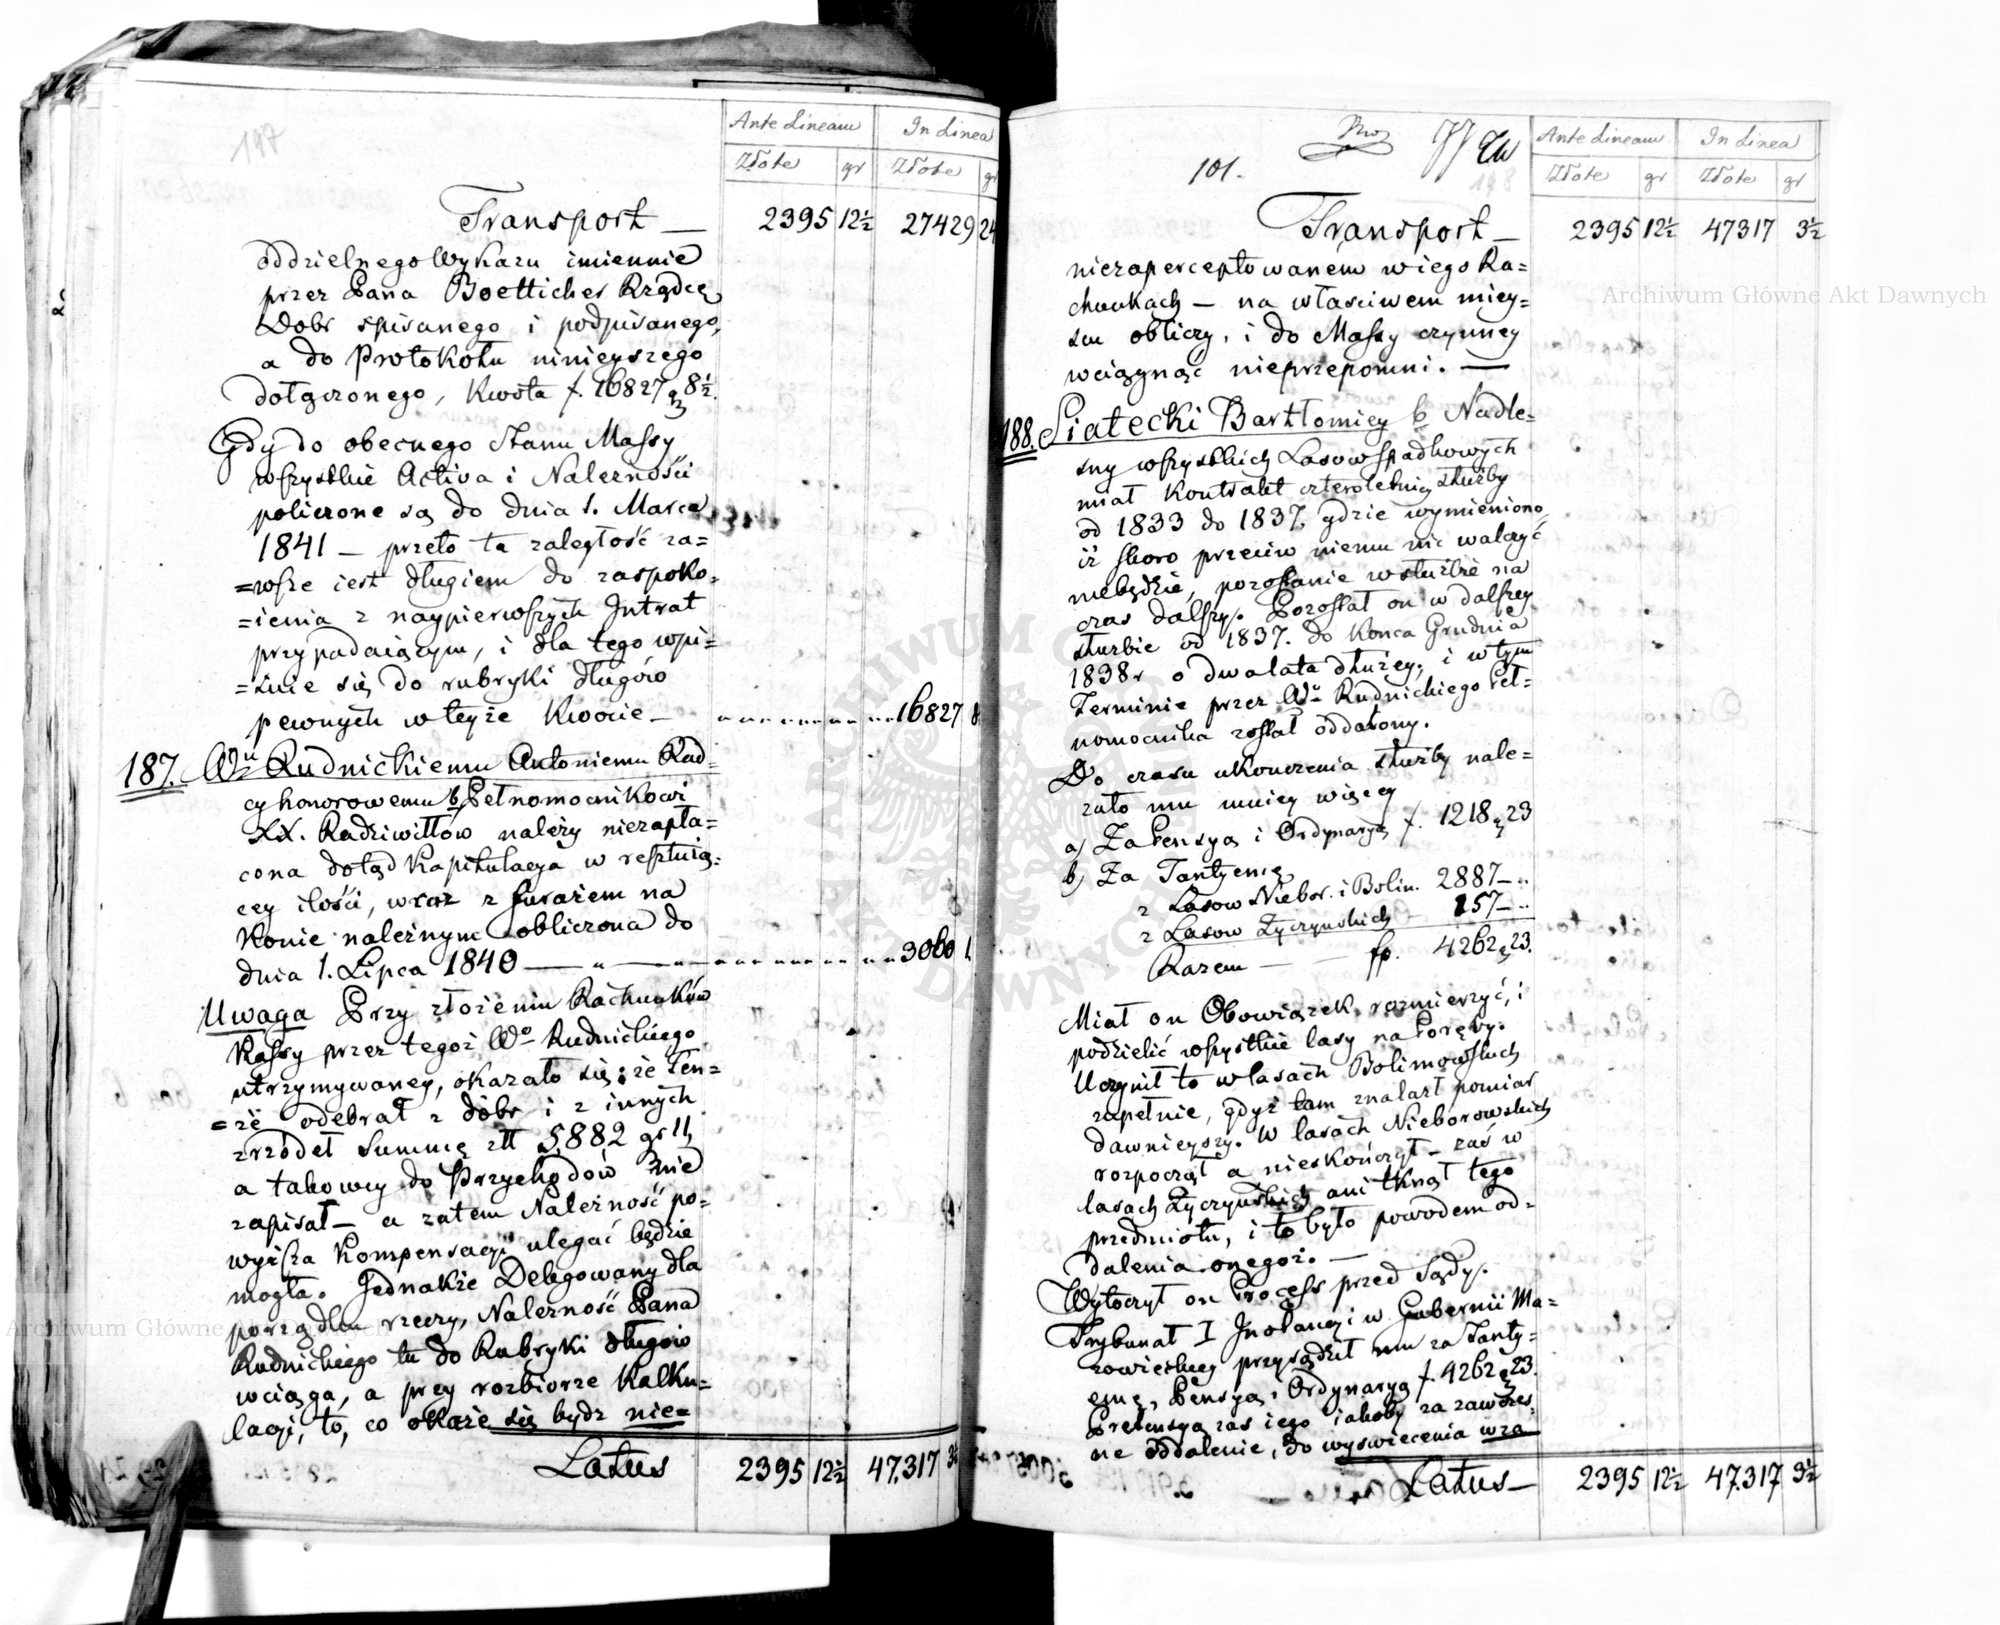 147
Ante Lineam In Linea
Złote gr Złote gr
Transport — 2395 12½ 27429 24
oddzielnego Wykazu imiennie
przez Pana Boetticher Rządcę
Dobr spisanego i podpisanego,
a do Protokołu ninieyszego
dołączonego, Kwota f. 16827 g 8½.
Gdy do obecnego Stanu Massy
wszystkie Activa i Należności
policzone są do dnia 1. Marca
1841 — przeto ta zaległość za=
=wsze iest długiem do zaspoko=
=ienia z naypierwszych Intrat
przypadaiącym, i dla tego wpi=
=suie się do rubryki długów
pewnych w teyże Kwocie — 16827 8
187. Wu Rudnickiemu Antoniemu Rad=
cy honorowemu b. Pełnomocnikowi
XX. Radziwiłłów należy niezapła=
cona dotąd Kapitulacya w resztuią=
cey ilości, wraz z furażem na
Konie należnym obliczona do
dnia 1. Lipca 1840 — 3060 1.
Uwaga Przy złożeniu Rachunków
Kassy przez tegoż Wo Rudnickiego
utrzymywaney, okazało się: że Ten=
=że odebrał z dóbr i z innych
zrzódeł Summę złt 5,882 gr 11,
a takowey do Przychodów nie
zapisał — a zatem Należność po=
wyższa Kompensacyi ulegać będzie
mogła. Jednakże Delegowany dla
porządku rzeczy, Należność Pana
Rudnickiego tu do Rubryki długów
wciąga, a przy rozbiorze Kalku=
lacyi, to, co okaże się bydz nie=
Latus 2395 12½ 47.317 3½
101.
148
Ante Lineam In Linea
Złote gr Złote gr
Transport — 2395 12½ 47317 3½
niezaperceptowanem w iego Ra=
chunkach — na właściwem miey=
scu obliczy, i do Massy czynney
wciągnąć nieprzepomni. —
188. Siatecki Bartłomiey b. Nadle=
sny wszystkich Lasow Spadkowych
miał Kontrakt czteroletniey służby
od 1833 do 1837, gdzie wymieniono,
iż skoro przeciw niemu nic walczyć
niebędzie, pozostanie w służbie na
czas dalszy. Pozostał on w dalszey
służbie od 1837. do Konca Grudnia
1838 r o dwa lata dłużey, i w tym
Terminie przez Wo Rudnickiego Peł=
nomocnika został oddalony.
Do czasu ukonczenia służby nale=
żało mu mniey więcey
a) Za Pensyą i Ordynaryą f. 1218 g 23
b) Za Tantyemę
z Lasow Niebor. i Bolim. 2887 — ..
z Lasow Życzynskich — 157 — ..
Razem — — fp. 4262 g 23.
Miał on Obowiązek, rozmierzyć, i
podzielić wszystkie lasy na Poręby.
Uczynił to w lasach Bolimowskich
zupełnie, gdyż tam znalazł pomiar
dawnieyszy. W lasach Nieborowskich
rozpoczął a nieskończył — zaś w
lasach Życzyńskich ani tknął tego
przedmiotu, i to było powodem od=
dalenia onegoż. —
Wytoczył on Process przed Sądy.
Trybunał I Instancyi w Gubernii Ma=
zowieckiey przysądził mu za Tanty=
emę, Pensyą, i Ordynaryą f. 4262 g 23.
Pretensyą zas iego iakoby za zawczes=
ne oddalenie, do wyswiecenia wza
Latus — 2395 12½ 47.317 3½
Archiwum Główne Akt Dawnych
Archiwum Główne Akt Dawnych
ARCHIWUM GŁÓWNE AKT DAWNYCH